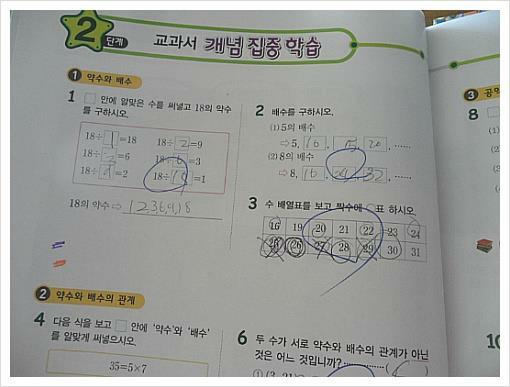 2 단계 교과서 개념 집중 학습
1 약수와 배수
1 □ 안에 알맞은 수를 써넣고 18의 약수
를 구하시오.
18÷1=18 18÷2=9
18÷3=6 18÷6=3
18÷9=2 18÷18=1
18의 약수 ⇨ 1 2 3 6 9 18
2 배수를 구하시오.
(1) 5의 배수
⇨ 5, 10, 15, 20, ……
(2) 8의 배수
⇨ 8, 16, 24, 32, ……
3 수 배열표를 보고 짝수에 ○표 하시오.
16 19 20 21 22 23 24
26 27 28 29 30 31
2 약수와 배수의 관계
4 다음 식을 보고 □ 안에 '약수'와 '배수'
를 알맞게 써넣으시오.
35=5×7
6 두 수가 서로 약수와 배수의 관계가 아닌
것은 어느 것입니까?
① (3, 21)
3
8
(1)
(2)
9
10